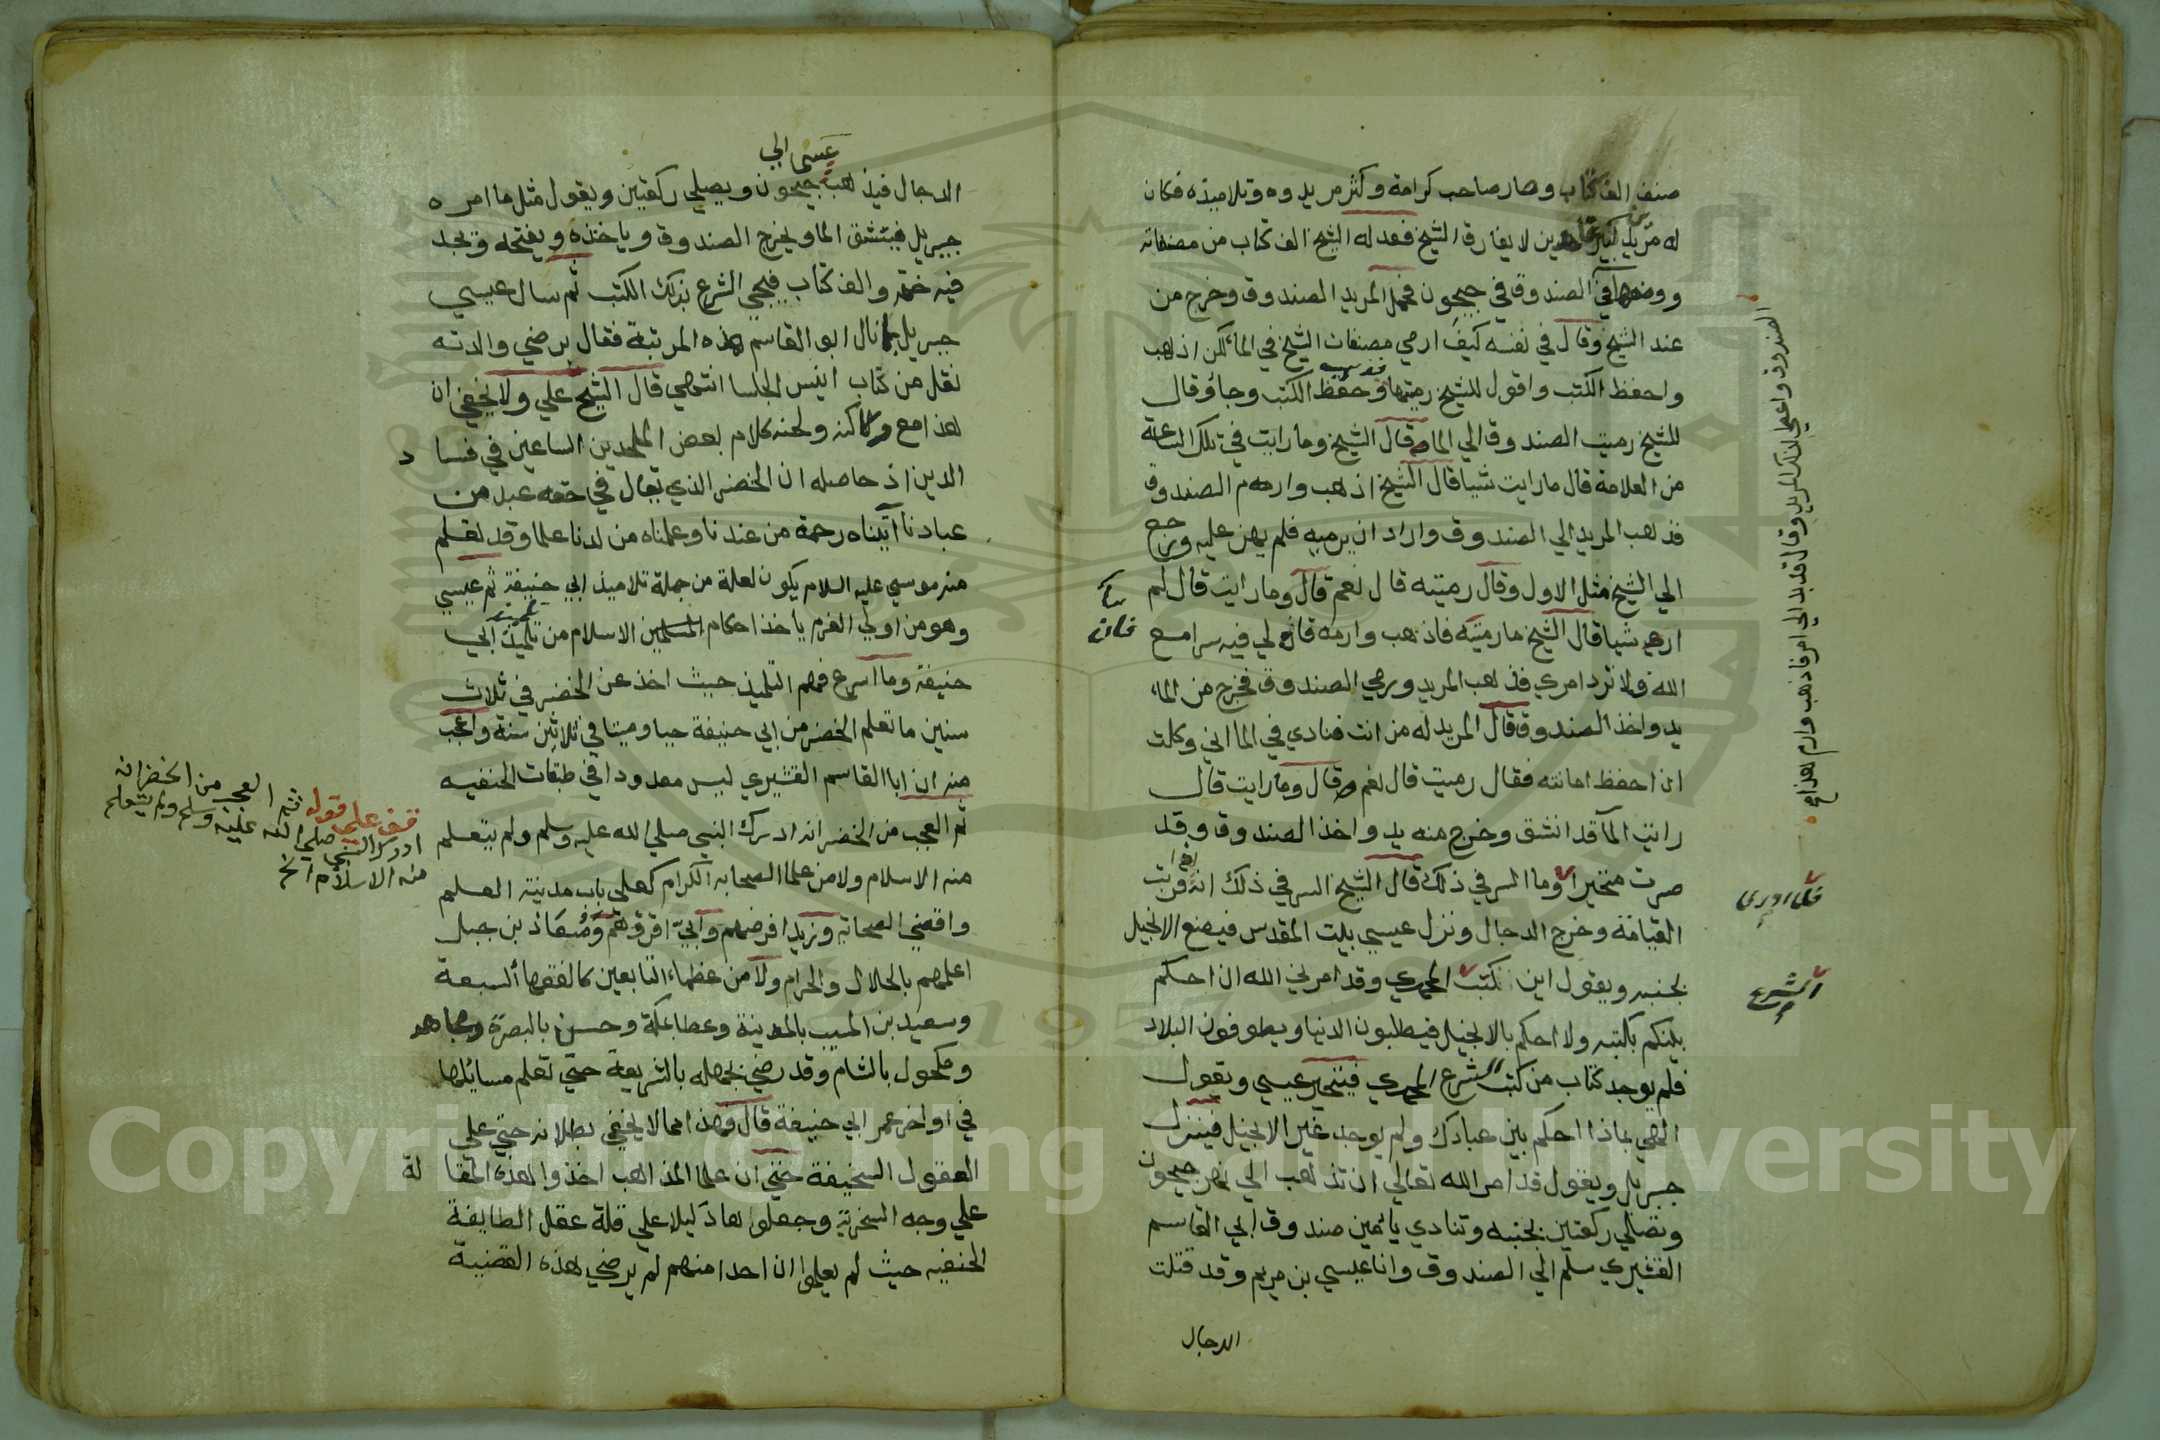 صنف الف كتاب وصار صاحب كرامة وكثر مريدوه وتلاميذه فكان
له مريد كبير لا يفارق الشيخ فعد له الشيخ الف كتاب من مصنفاته
ووضعها في الصندوق في جيحون فحمل المريد الصندوق وخرج من
عند الشيخ وقال في نفسه كيف ارمي مصنفات الشيخ في الما لكن اذهب
واحفظ الكتب واقول للشيخ رميتها وحفظ الكتب وجا وقال
للشيخ رميت الصندوق الي الما قال الشيخ وما رايت في تلك الساعة
من العلامة قال ما رايت شيا قال الشيخ اذهب وارم الصندوق
فذهب المريد الي الصندوق واراد ان يرميه فلم يهن عليه ورجع
الي الشيخ مثل الاول وقال رميته قال نعم قال وما رايت قال لم
ار شيا قال الشيخ ما رميته فاذهب وارمه فان لي فيه سرا مع
الله ولا ترد امري فذهب المريد ورمي الصندوق فخرج من الماء
يد واخذ الصندوق قال المريد له من انت فنادي في الما اني وكلت
ان احفظ امانته فقال رميت قال نعم قال وما رايت قال
رايت الما قد انشق وخرج منه يد واخذ الصندوق وقد
صرت متحيرا وما السر في ذلك قال الشيخ السر في ذلك انه اذا قربت
القيامة وخرج الدجال ونزل عيسي بيت المقدس فيضع الانجيل
بجنبه ويقول اين كتب المحمدي وقد امرني الله ان احكم
بينكم بكتبه ولا احكم بالانجيل فيطلبون الدنيا ويطوفون البلاد
فلم يوجد كتاب من كتب الشرع المحمدي فيتحير عيسي ويقول
الهي بماذا احكم بين عبادك ولم يوجد غير الانجيل فينزل
جبريل ويقول قد امر الله تعالي ان تذهب الي نهر جيحون
وتصلي ركعتين بجنبه وتنادي يا امين صندوق ابي القاسم
القشيري سلم الي الصندوق وانا عيسي بن مريم وقد قتلت
الدجال
فان
الشرع
الدجال فيذهب عيسى الي جيحون ويصلي ركعتين ويقول مثل ما امره
جبريل فينشق الما ويخرج الصندوق وياخذه ويفتحه ويجد
فيه ختمه والف كتاب فيحي الشرع بذلك الكتب ثم سال عيسي
جبريل بما نال ابو القاسم هذه المرتبة فقال برضي والدته
نقل من كتاب انيس الجلسا انتهي قال الشيخ علي ولا يخفي ان
هذا مع ركاكته ولحنه كلام بعض الملحدين الساعين في فساد
الدين اذ حاصله ان الخضر الذي يقال في حقه عبد من
عبادنا آتيناه رحمة من عندنا وعلمناه من لدنا علما وقد تعلم
منه موسي عليه السلام يكون لعلة من جملة تلاميذ ابي حنيفة ثم عيسي
وهو من اولي العزم يأخذ احكام الاسلام من تلميذ ابي
حنيفة وما اسرع فهم التلميذ حيث اخذ عن الخضر في ثلاث
سنين ما تعلم الخضر من ابي حنيفة حيا وميتا في ثلاثين سنة واعجب
منه ان ابا القاسم القشيري ليس معدودا في طبقات الحنفيه
ثم العجب من الخضر انه ادرك النبي صلي الله عليه وسلم ولم يتعلم
منه الاسلام ولا من علما الصحابه الكرام كعلي باب مدينة العلم
واقضي الصحابة وزيد افرضهم وابي اقرؤهم ومعاذ بن جبل
اعلمهم بالحلال والحرام ولا من عظماء التابعين كالفقهاء السبعة
وسعيد بن المسيب بالمدينة وعطا بمكة وحسن بالبصرة ومجاهد
ومكحول بالشام وقد رضي بجهله بالشريعة حتي تعلم مسايلها
في اواخر عمر ابي حنيفة قال فهذا مما لا يخفي بطلانه حتي علي
العقول السخيفة حتي ان علما المذاهب اخذوا هذه المقالة
علي وجه السخرية وجعلوها دليلا علي قلة عقل الطايفة
الحنفيه حيث لم يعلموا ان احدا منهم لم يرضي بهذه القضية
قف علي قوله ثم العجب من الخضر انه
ادرك النبي صلي الله عليه وسلم ولم يتعلم
منه الاسلام الخ
Copyright © King Saud University
1957